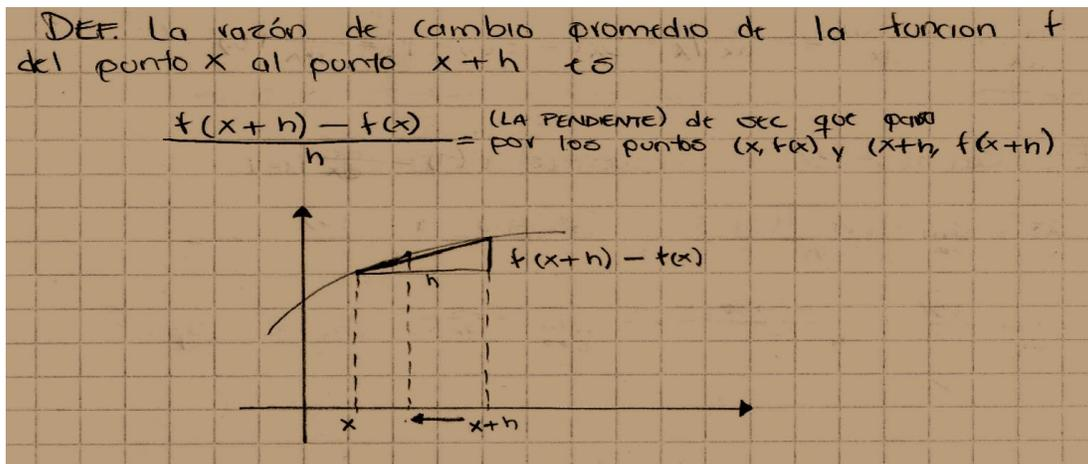 DEF. La razón de cambio promedio de la funcion f
del punto x al punto x+h es
f(x+h) − f(x) = (LA PENDIENTE) de sec que pasa
h por los puntos (x, f(x) y (x+h, f(x+h)
f(x+h) − f(x)
h
x x+h